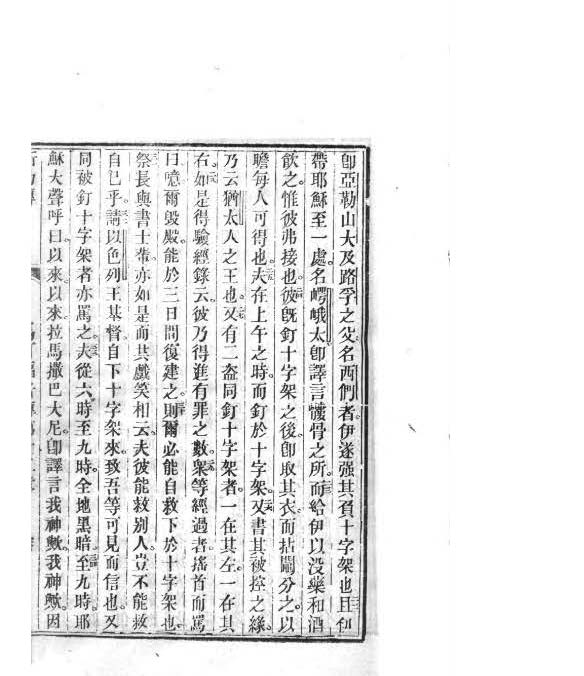 卽亞勒山大及路孚之父名西們者伊遂强其負十字架也且伊
帶耶穌至一處名嶀峨太卽譯言髏骨之所而給伊以没藥和酒
飲之惟彼弗接也彼旣釘十字架之後卽取其衣而拈鬮分之以
瞻每人可得也夫在上午之時而釘於十字架又書其被控之緣
乃云猶太人之王也又有二盗同釘十字架者一在其左一在其
右如是得驗經錄云彼乃得進有罪之數衆等經過者搖首而罵
曰噫爾毁殿能於三日間復建之則爾必能自救下於十字架也
祭長與書士帶亦如是而共戲笑相云夫彼能救别人豈不能救
自己乎請以色列王基督自下十字架來致吾等可見而信也又
同被釘十字架者亦罵之夫從六時至九時全地黑暗至九時耶
穌大聲呼曰以來以來拉馬撒巴大尼卽譯言我神歟我神歟因